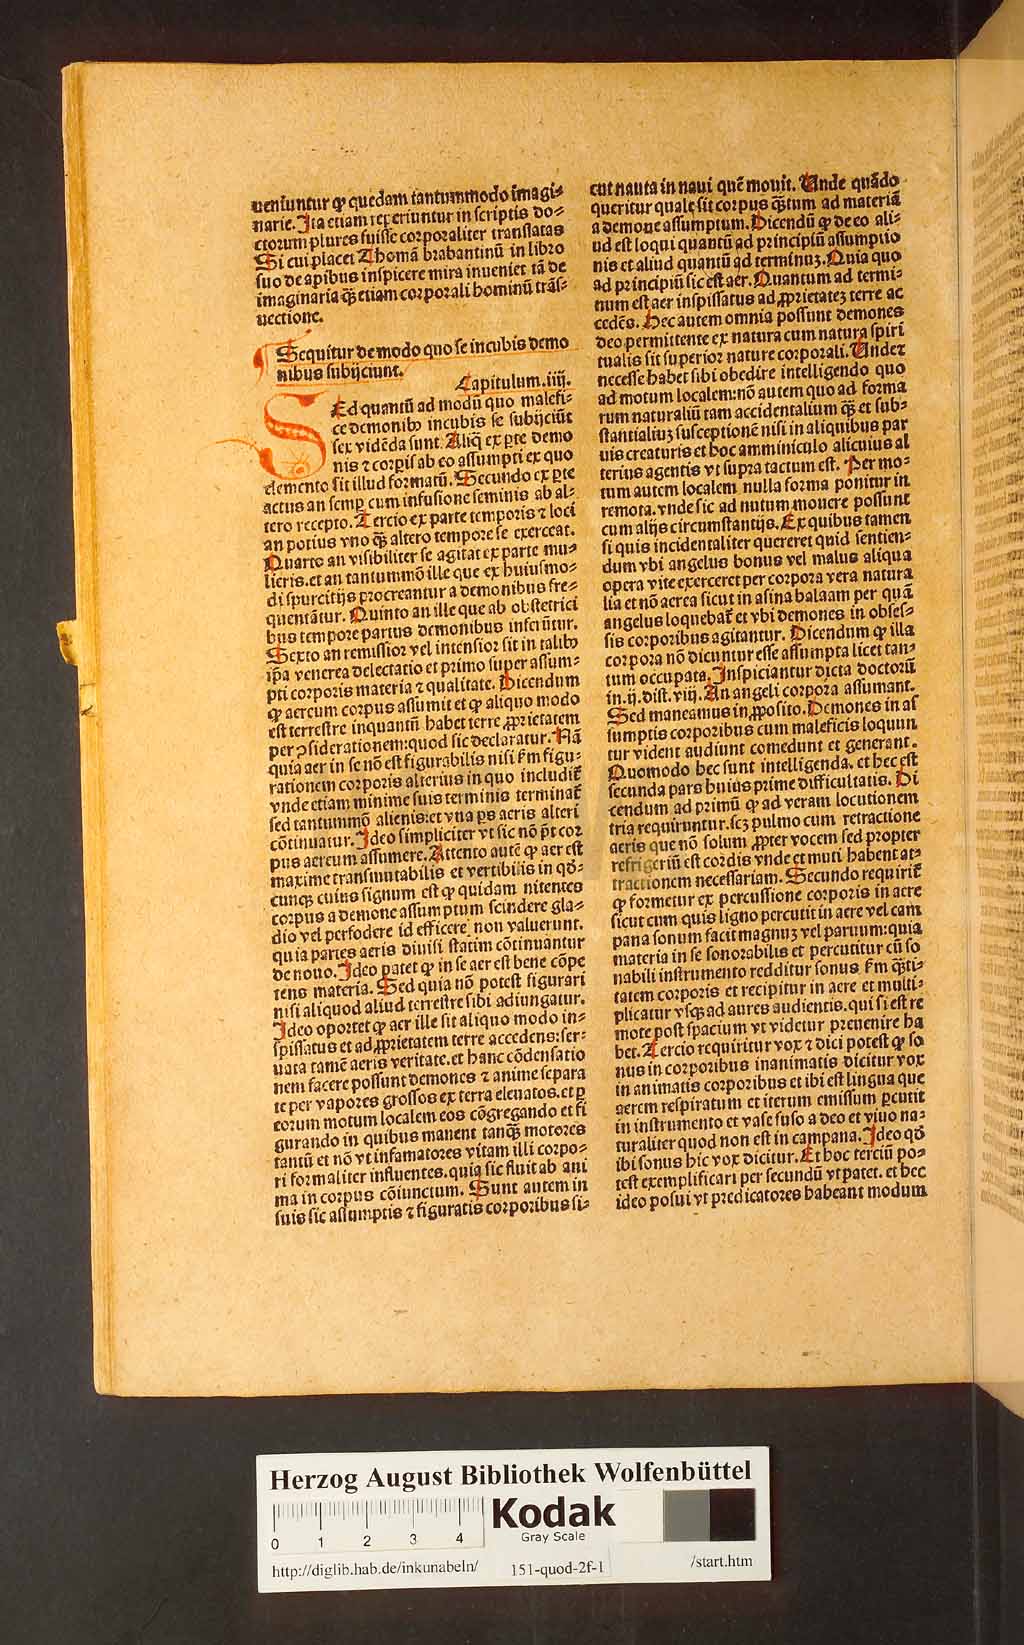 ueniuntur qꝫ quedam tantummodo imagi⸗
narie. Ita etiam reperiuntur in scriptis do⸗
ctorum plures fuisse corporaliter translatas
Si cui placet Thomã brabantinũ in libro
suo de apibus inspicere mira inueniet tã de
imaginaria q̃ꝫ etiam corporali hominũ trãs⸗
uectione.
Sequitur de modo quo se incubis demo
nibus subijciunt.
Capitulum .iiij.
SEd quantũ ad modũ quo malefi⸗
ce demonibꝰ incubis se subijciũt
sex vidẽda sunt. Aliq̃ ex ꝑte demo
nis ⁊ corpĩs ab eo assumpti ex quo
elemento sit illud formatũ. Secundo ex ꝑte
actus an semꝑ cum infusione seminis ab al⸗
tero recepto. Tercio ex parte temporis ⁊ loci
an potius vno q̃ꝫ altero tempore se exerceat.
Quarto an visibiliter se agitat ex parte mu⸗
lieris. et an tantummõ ille que ex huiusmo⸗
di spurcitijs procreantur a demonibus fre⸗
quentãtur. Quinto an ille que ab obstetrici
bus tempore partus demonibus inferũtur.
Sexto an remissior vel intensior sit in talibꝰ
ip̃a venerea delectatio et primo super assum⸗
pti corporis materia ⁊ qualitate. Dicendum
ꝙ aereum corpus assumit et ꝙ aliquo modo
est terrestre inquantũ habet terre ꝓprietatem
per ꝯsiderationem: quod sic declaratur. Nã
quia aer in se nõ est figurabilis nisi ẜm figu⸗
rationem corporis alterius in quo includit̃
vnde etiam minime suis terminis terminat̃
sed tantummõ alienis: et vna ꝑs aeris alteri
cõtinuatur. Ideo simpliciter vt sic nõ põt cor
pus aereum assumere. Attento autẽ ꝙ aer est
maxime transmutabilis et vertibilis in qõ⸗
cunqꝫ cuius signum est ꝙ quidam nitentes
corpus a demone assumptum scindere gla⸗
dio vel perfodere id efficere non valuerunt.
quia partes aeris diuisi statim cõtinuantur
de nouo. Ideo patet ꝙ in se aer est bene cõpe
tens materia. Sed quia nõ potest figurari
nisi aliquod aliud terrestre sibi adiungatur.
Ideo oportet ꝙ aer ille sit aliquo modo in⸗
spissatus et ad ꝓprietatem terre accedens: ser⸗
uata tamẽ aeris veritate. et hanc cõdensatio
nem facere possunt demones ⁊ anime separa
te per vapores grossos ex terra eleuatos. et ꝑ
eorum motum localem eos cõgregando et fi
gurando in quibus manent tanq̃ꝫ motores
tantũ et nõ vt infamatores vitam illi corpo⸗
ri formaliter influentes. quia sic fluit ab ani
ma in corpus cõiunctum. Sunt autem in
suis sic assumptis ⁊ figuratis corporibus si⸗
cut nauta in naui quẽ mouit. Unde quãdo
queritur quale sit corpus q̃tum ad materiã
a demone assumptum. Dicendũ ꝙ de eo ali⸗
ud est loqui quantũ ad principiũ assumptio
nis et aliud quantũ ad terminuꝫ. Quia quo
ad principiũ sic est aer. Quantum ad termi⸗
num est aer inspissatus ad ꝓprietateꝫ terre ac
cedẽs. Hec autem omnia possunt demones
deo permittente ex natura cum natura spiri
tualis sit superior nature corporali. Unde⁊
necesse habet sibi obedire intelligendo quo
ad motum localem: nõ autem quo ad forma
rum naturaliũ tam accidentalium q̃ꝫ et sub⸗
stantialiuꝫ susceptionẽ nisi in aliquibus par
uis creaturis et hoc amminiculo alicuius al
terius agentis vt supra tactum est. Per mo⸗
tum autem localem nulla forma ponitur in
remota. vnde sic ad nutum mouere possunt
cum alijs circumstantijs. Ex quibus tamen
si quis incidentaliter quereret quid sentien⸗
dum vbi angelus bonus vel malus aliqua
opera vite exerceret per corpora vera natura
lia et nõ aerea sicut in asina balaam per quã
angelus loquebat̃ et vbi demones in obses⸗
sis corporibus agitantur. Dicendum ꝙ illa
corpora nõ dicuntur esse assumpta licet tan⸗
tum occupata. Inspiciantur dicta doctorũ
in .ij. dist. viij. An angeli corpora assumant.
Sed maneamus in ꝓposito. Demones in as
sumptis corporibus cum maleficis loquun
tur vident audiunt comedunt et generant.
Quomodo hec sunt intelligenda. et hec est
secunda pars huius prime difficultatis. Di
cendum ad primũ ꝙ ad veram locutionem
tria requiruntur. scꝫ pulmo cum retractione
aeris que nõ solum ꝓpter vocem sed propter
refrigeriũ est cordis vnde et muti habent at⸗
tractionem necessariam. Secundo requirit̃
ꝙ formetur ex percussione corporis in aere
sicut cum quis ligno percutit in aere vel cam
pana sonum facit magnuꝫ vel paruum: quia
materia in se sonorabilis et percutitur cũ so
nabili instrumento redditur sonus ẜm q̃ti⸗
tatem corporis et recipitur in aere et multi⸗
plicatur vsqꝫ ad aures audientis. qui si est re
mote post spacium vt videtur preuenire ha
bet. Tercio requiritur vox ⁊ dici potest ꝙ so
nus in corporibus inanimatis dicitur vox
in animatis corporibus et ibi est lingua que
aerem respiratum et iterum emissum ꝑcutit
in instrumento et vase fuso a deo et viuo na⸗
turaliter quod non est in campana. Ideo qõ
ibi sonus hic vox dicitur. Et hoc terciũ po⸗
test exemplificari per secundũ vt patet. et hec
ideo posui vt predicatores habeant modum
Herzog August Bibliothek Wolfenbüttel
0 1 2 3 4
Kodak
Gray Scale
http://diglib.hab.de/inkunabeln/ 151-quod-2f-1 /start.htm